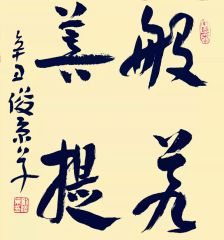 般若
菩提
辛丑俊